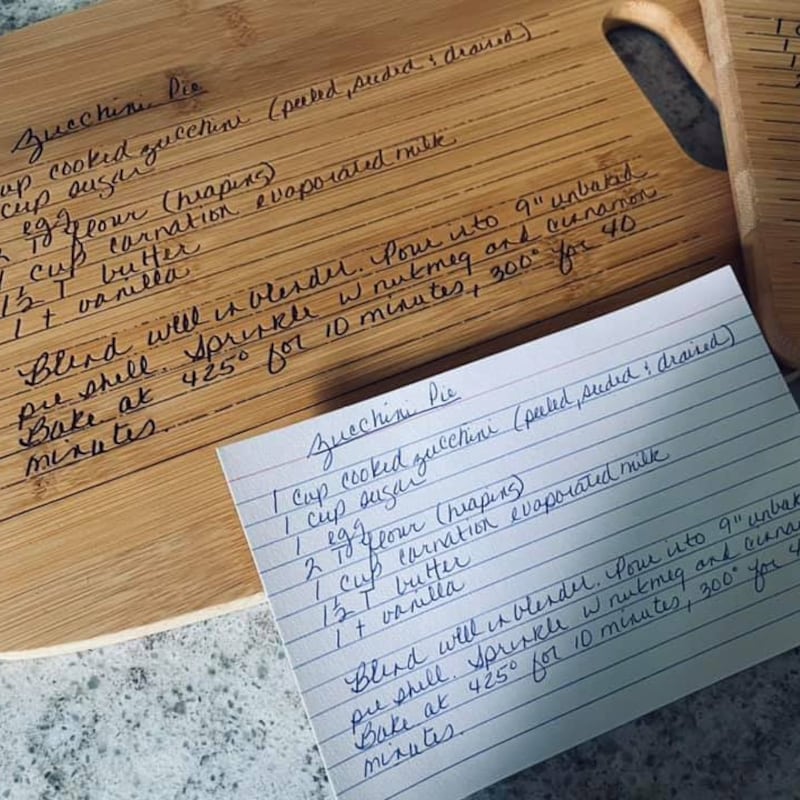 Zucchini Pie
up cooked zucchini (peeled, seeded & drained)
cup sugar
egg
2 T flour (heaping)
1 cup carnation evaporated milk
1½ T butter
1 t vanilla
Blend well in blender. Pour into 9" unbaked
pie shell. Sprinkle w nutmeg and cinnamon
Bake at 425° for 10 minutes, 300° for 40
minutes.
Zucchini Pie
1 cup cooked zucchini (peeled, seeded & drained)
1 cup sugar
1 egg
2 T flour (heaping)
1 cup carnation evaporated milk
1½ T butter
1 t vanilla
Blend well in blender. Pour into 9" unbak
pie shell. Sprinkle w nutmeg and cinna
Bake at 425° for 10 minutes, 300° for 4
minutes.